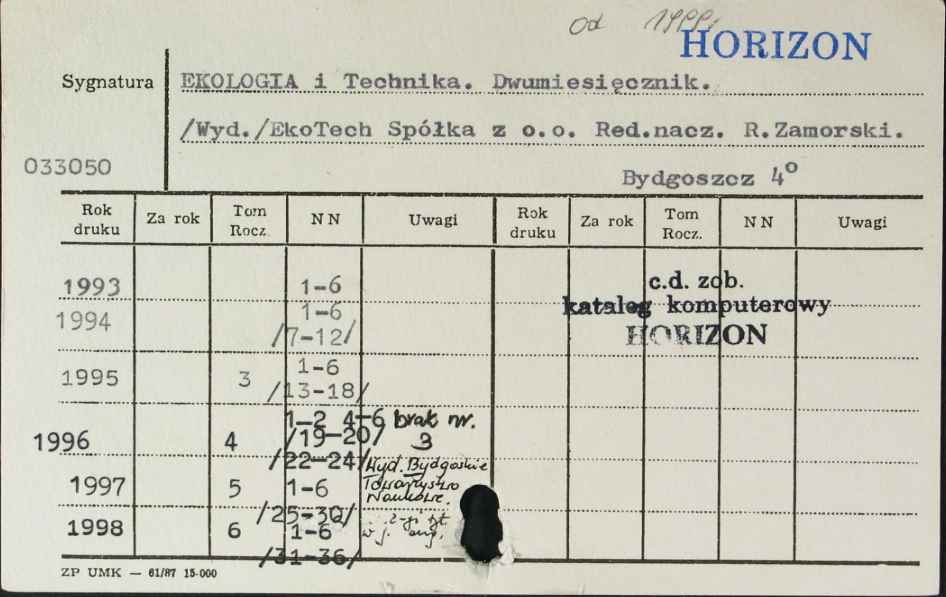 od 1999
HORIZON
Sygnatura EKOLOGIA i Technika. Dwumiesięcznik.
/Wyd./EkoTech Spółka z o.o. Red.nacz. R.Zamorski.
033050
Bydgoszcz 4°
Rok druku Za rok Tom Rocz. NN Uwagi Rok druku Za rok Tom Rocz. NN Uwagi
c.d. zob.
katalog komputerowy
HORIZON
1993 1-6
1994 1-6
/7-12/
1995 3 1-6
/13-18/
1996 4 1-2 4-6 brak nr. 3
/19-20/
/22-24/ Wyd. Bydgoskie
Towarzystwo
Naukowe.
1997 5 1-6
/25-30/
1998 6 1-6 2-gi tyt.
w j. ang.
/31-36/
ZP UMK — 61/87 15-000